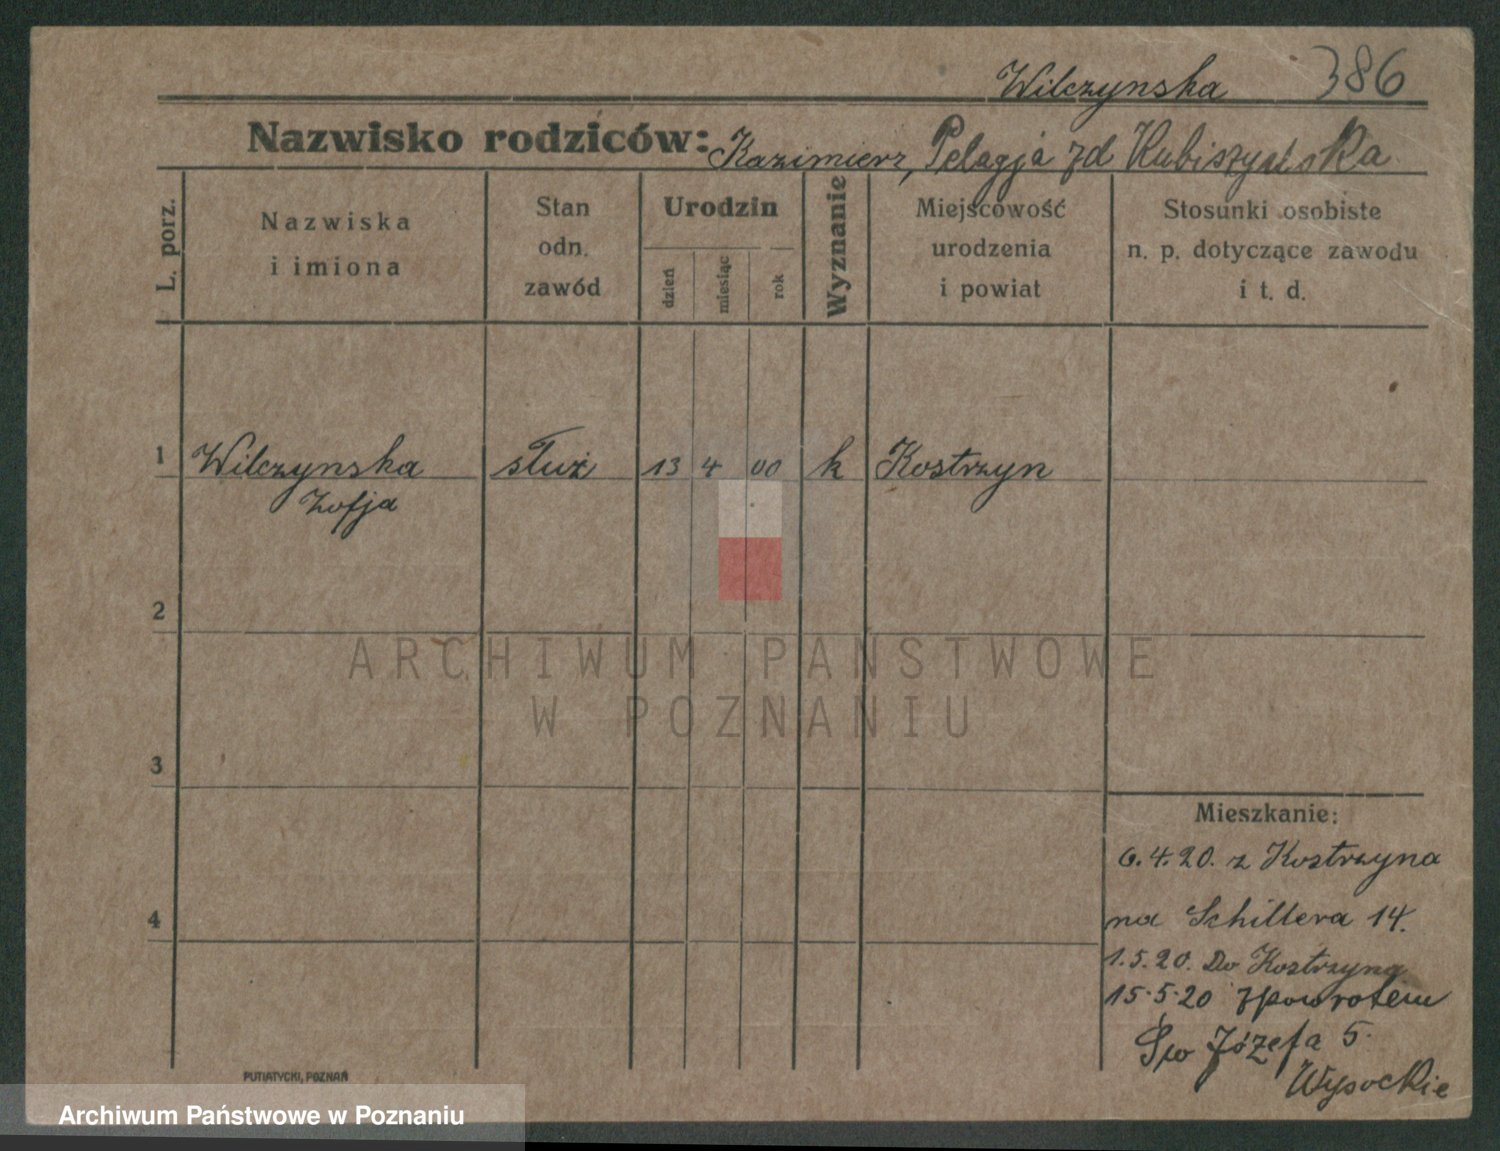 Wilczynska 386
Nazwisko rodziców: Kazimierz, Pelagja zd Kubiszyńska
L. porz.
Nazwiska
i imiona
Stan
odn.
zawód
Urodzin
dzień
miesiąc
rok
Wyznanie
Miejscowość
urodzenia
i powiat
Stosunki osobiste
n. p. dotyczące zawodu
i t. d.
1 Wilczynska służ 13 4 00 k Kostrzyn
Zofja
2
ARCHIWUM PAŃSTWOWE
W POZNANIU
3
Mieszkanie:
6.4.20. z Kostrzyna
4
na Schillera 14.
1.5.20. Do Kostrzyna
15.5.20 zpowrotem
Św Józefa 5.
Wysockie
PUTIATYCKI, POZNAŃ
Archiwum Państwowe w Poznaniu